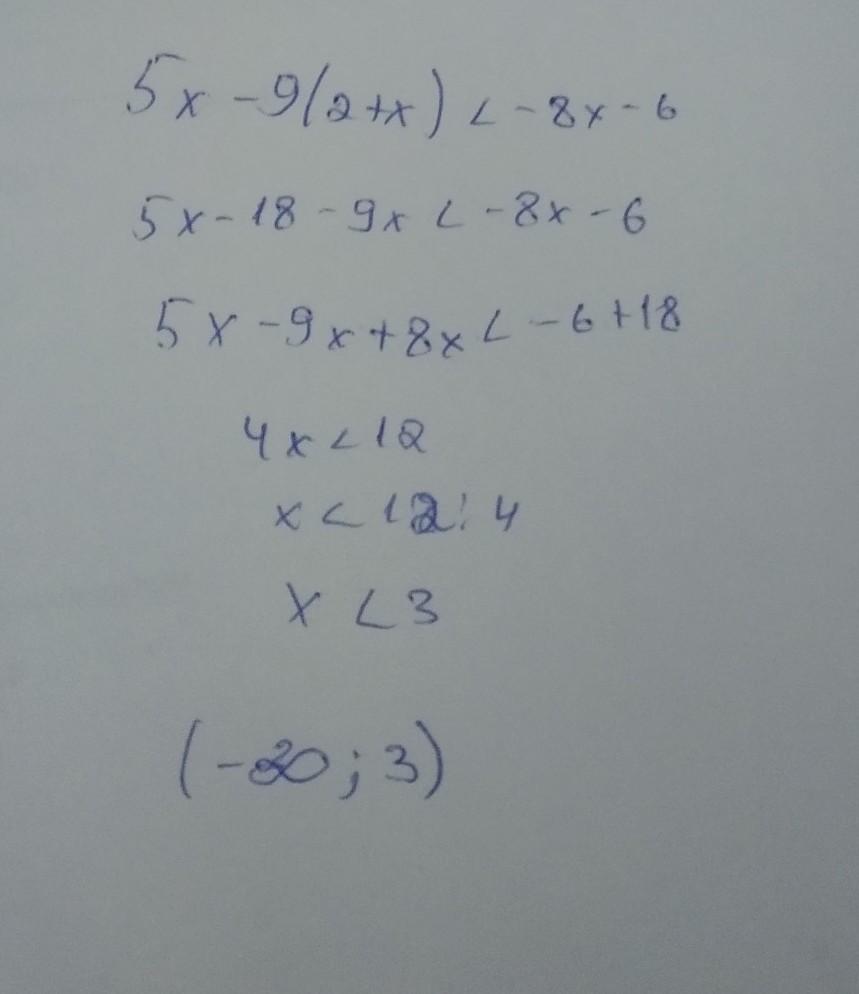 5x - 9(2+x) < -8x - 6
5x - 18 - 9x < -8x - 6
5x - 9x + 8x < -6 + 18
4x < 12
x < 12 : 4
x < 3
(-∞; 3)